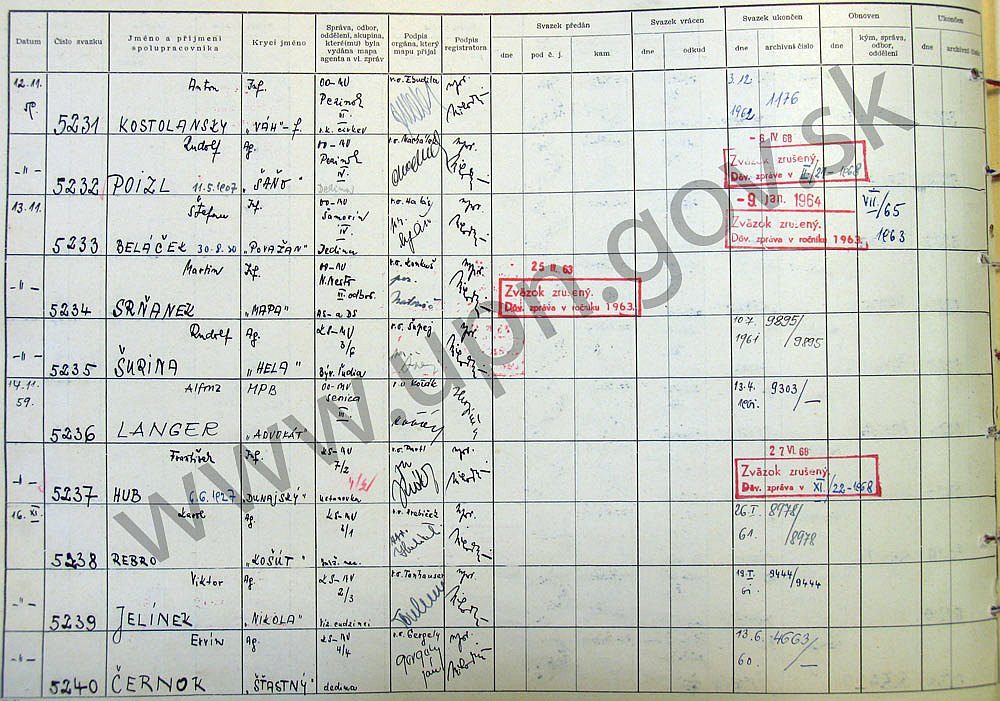 Datum
Číslo svazku
Jméno a příjmení spolupracovníka
Krycí jméno
Správa, odbor, oddělení, skupina, které(mu) byla vydána mapa agenta a vl. zpráv
Podpis orgána, který mapu přijal
Podpis registratora
Svazek předán
dne
pod č. j.
kam
Svazek vrácen
dne
odkud
Svazek ukončen
dne
archivní číslo
Obnoven
dne
kým, správa, odbor, oddělení
Ukončen
dne
archivní číslo
12.11.
5231
Anton
KOSTOLANSKY
Inf.
"VÁH"-f.
OO-MV
Pezinok
III.
r.k. cirkev
3.12.
1962
1176
-"-
5232
Rudolf
POIZL 11.5.1907
Ag.
"ŠAŇO"
OO-MV
Pezinok
IV
Dedina
-6 IV 68
Zväzok zrušený.
Dôv. zpráva v II/21-1968
13.11.
5233
Štefan
BELÁČEK 30.8.30
Inf.
"POVAŽAN"
OO-MV
Šamorín
IV.
Dedina
-9. Jan. 1964
Zväzok zrušený.
Dôv. zpráva v ročníku 1963.
VII/65
1963
-"-
5234
Martin
SRŇANEK
Inf.
"MAPA"
OO-MV
N. Mesto
II. odbor.
25 II. 63
Zväzok zrušený.
Dôv. zpráva v ročníku 1963.
-"-
5235
Rudolf
ŠURINA
Ag.
"HELA"
KS-MV
3/6
Býv. ľudia
10.7.
1961
9895/9895
14.11.
59.
5236
Alfonz
LANGER
MPB
"ADVOKÁT"
OO-MV
Senica
III.
r.o. Kovák
13.4.
9303/-
-"-
5237
František
HUB 6.6.1927
Inf.
"DUNAJSKÝ"
KS-MV
7/2
27 VI. 68
Zväzok zrušený.
Dôv. zpráva v XI/22-1968
16. XI.
5238
Karol
REBRO
Ag.
"KOŠÚT"
KS-MV
2/1
26.I.
61.
8978/8978
-"-
5239
Viktor
JELÍNEK
Ag.
"NIKOLA"
KS-MV
2/3
r.o. Tonhauser
9444/9444
-"-
5240
Ervín
ČERNOK
Ag.
"ŠŤASTNÝ"
KS-MV
4/4
dedina
r.o. Gergely
13.6.
60.
4663/-
www.upn.gov.sk